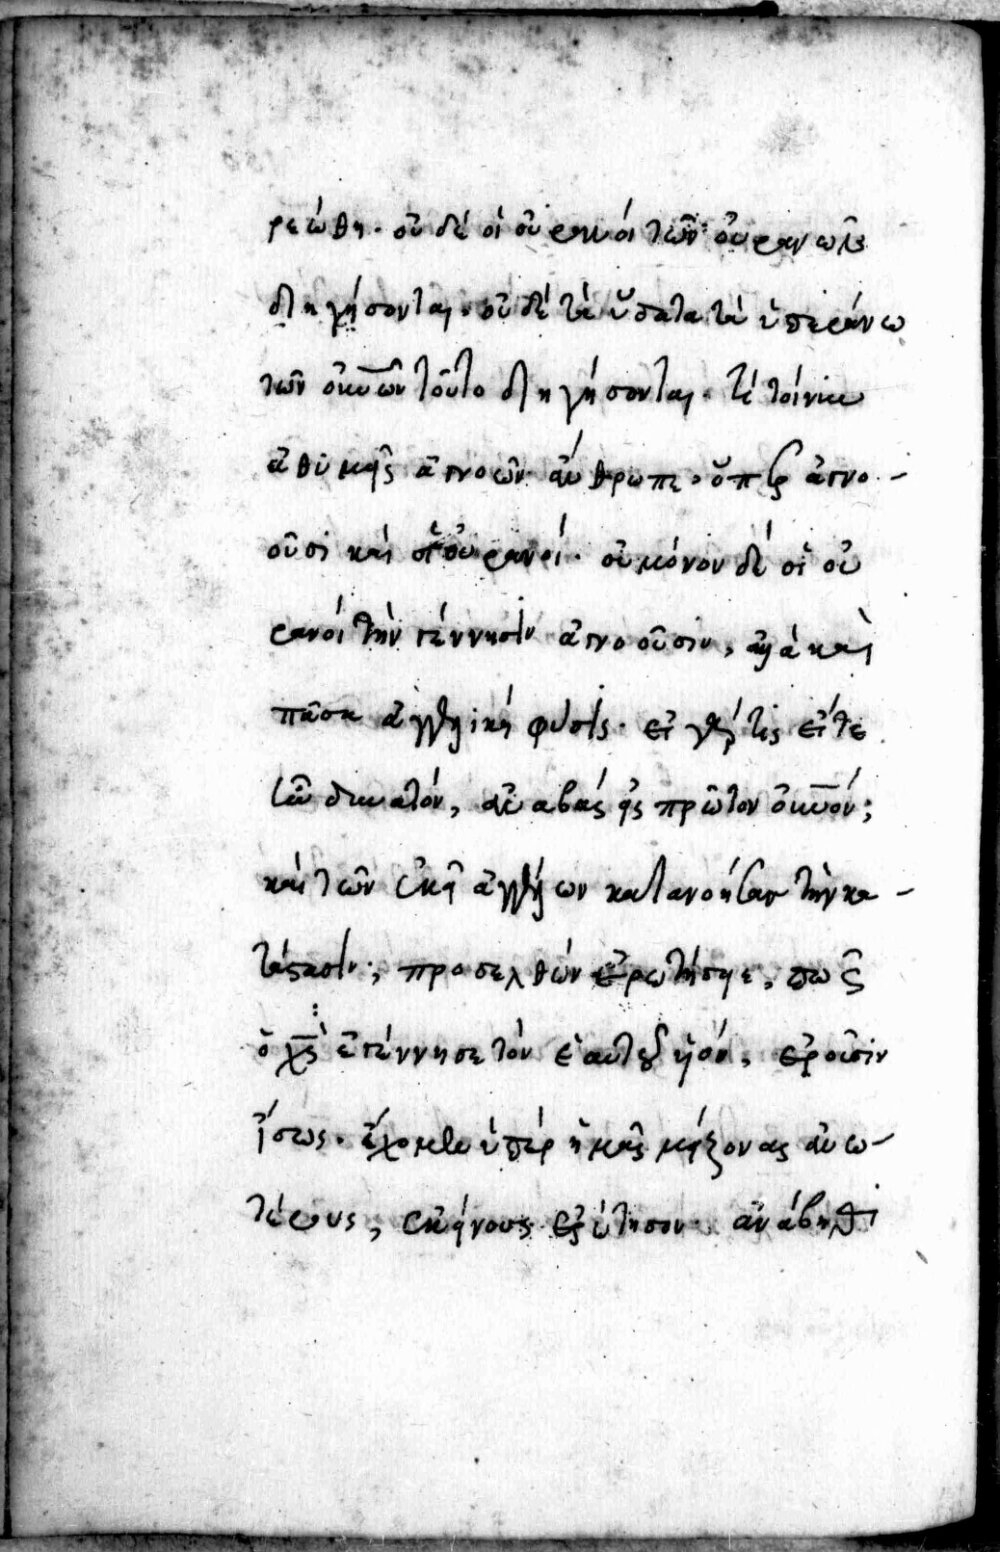 ρεώθη. οὐδὲ οἱ οὐρανοὶ τῶν οὐρανῶν
διηγήσονται. οὐδὲ τὰ ὕδατα τὰ ὑπεράνω
τῶν οὐνῶν τοῦτο διηγήσονται. τί τοίνυν
ἀθυμεῖς ἀγνοῶν ἄνθρωπε. ὅπερ ἀγνο-
οῦσι καὶ οἱ οὐρανοί. οὐ μόνον δὲ οἱ οὐ
ρανοὶ τὴν γέννησιν ἀγνοοῦσιν, ἀλλὰ καὶ
πᾶσα ἀγγελικὴ φύσις. εἰ γάρ τις εἴγε
ἦν δυνατόν, ἀναβὰς εἰς πρῶτον οὐνόν;
καὶ τῶν ἐκεῖ ἀγγέλων κατανοήσας τὴν κα-
τάστασιν; προσελθὼν ἐρωτήσειε, πῶς
ὁ χς ἐγέννησε τὸν ἑαυτοῦ υἱόν, ἐροῦσιν
ἴσως. ἔχομεν ὑπὲρ ἡμᾶς μείζονας ἀνω-
τέρους, ἐκείνους ἐρώτησον ἀνάβηθι